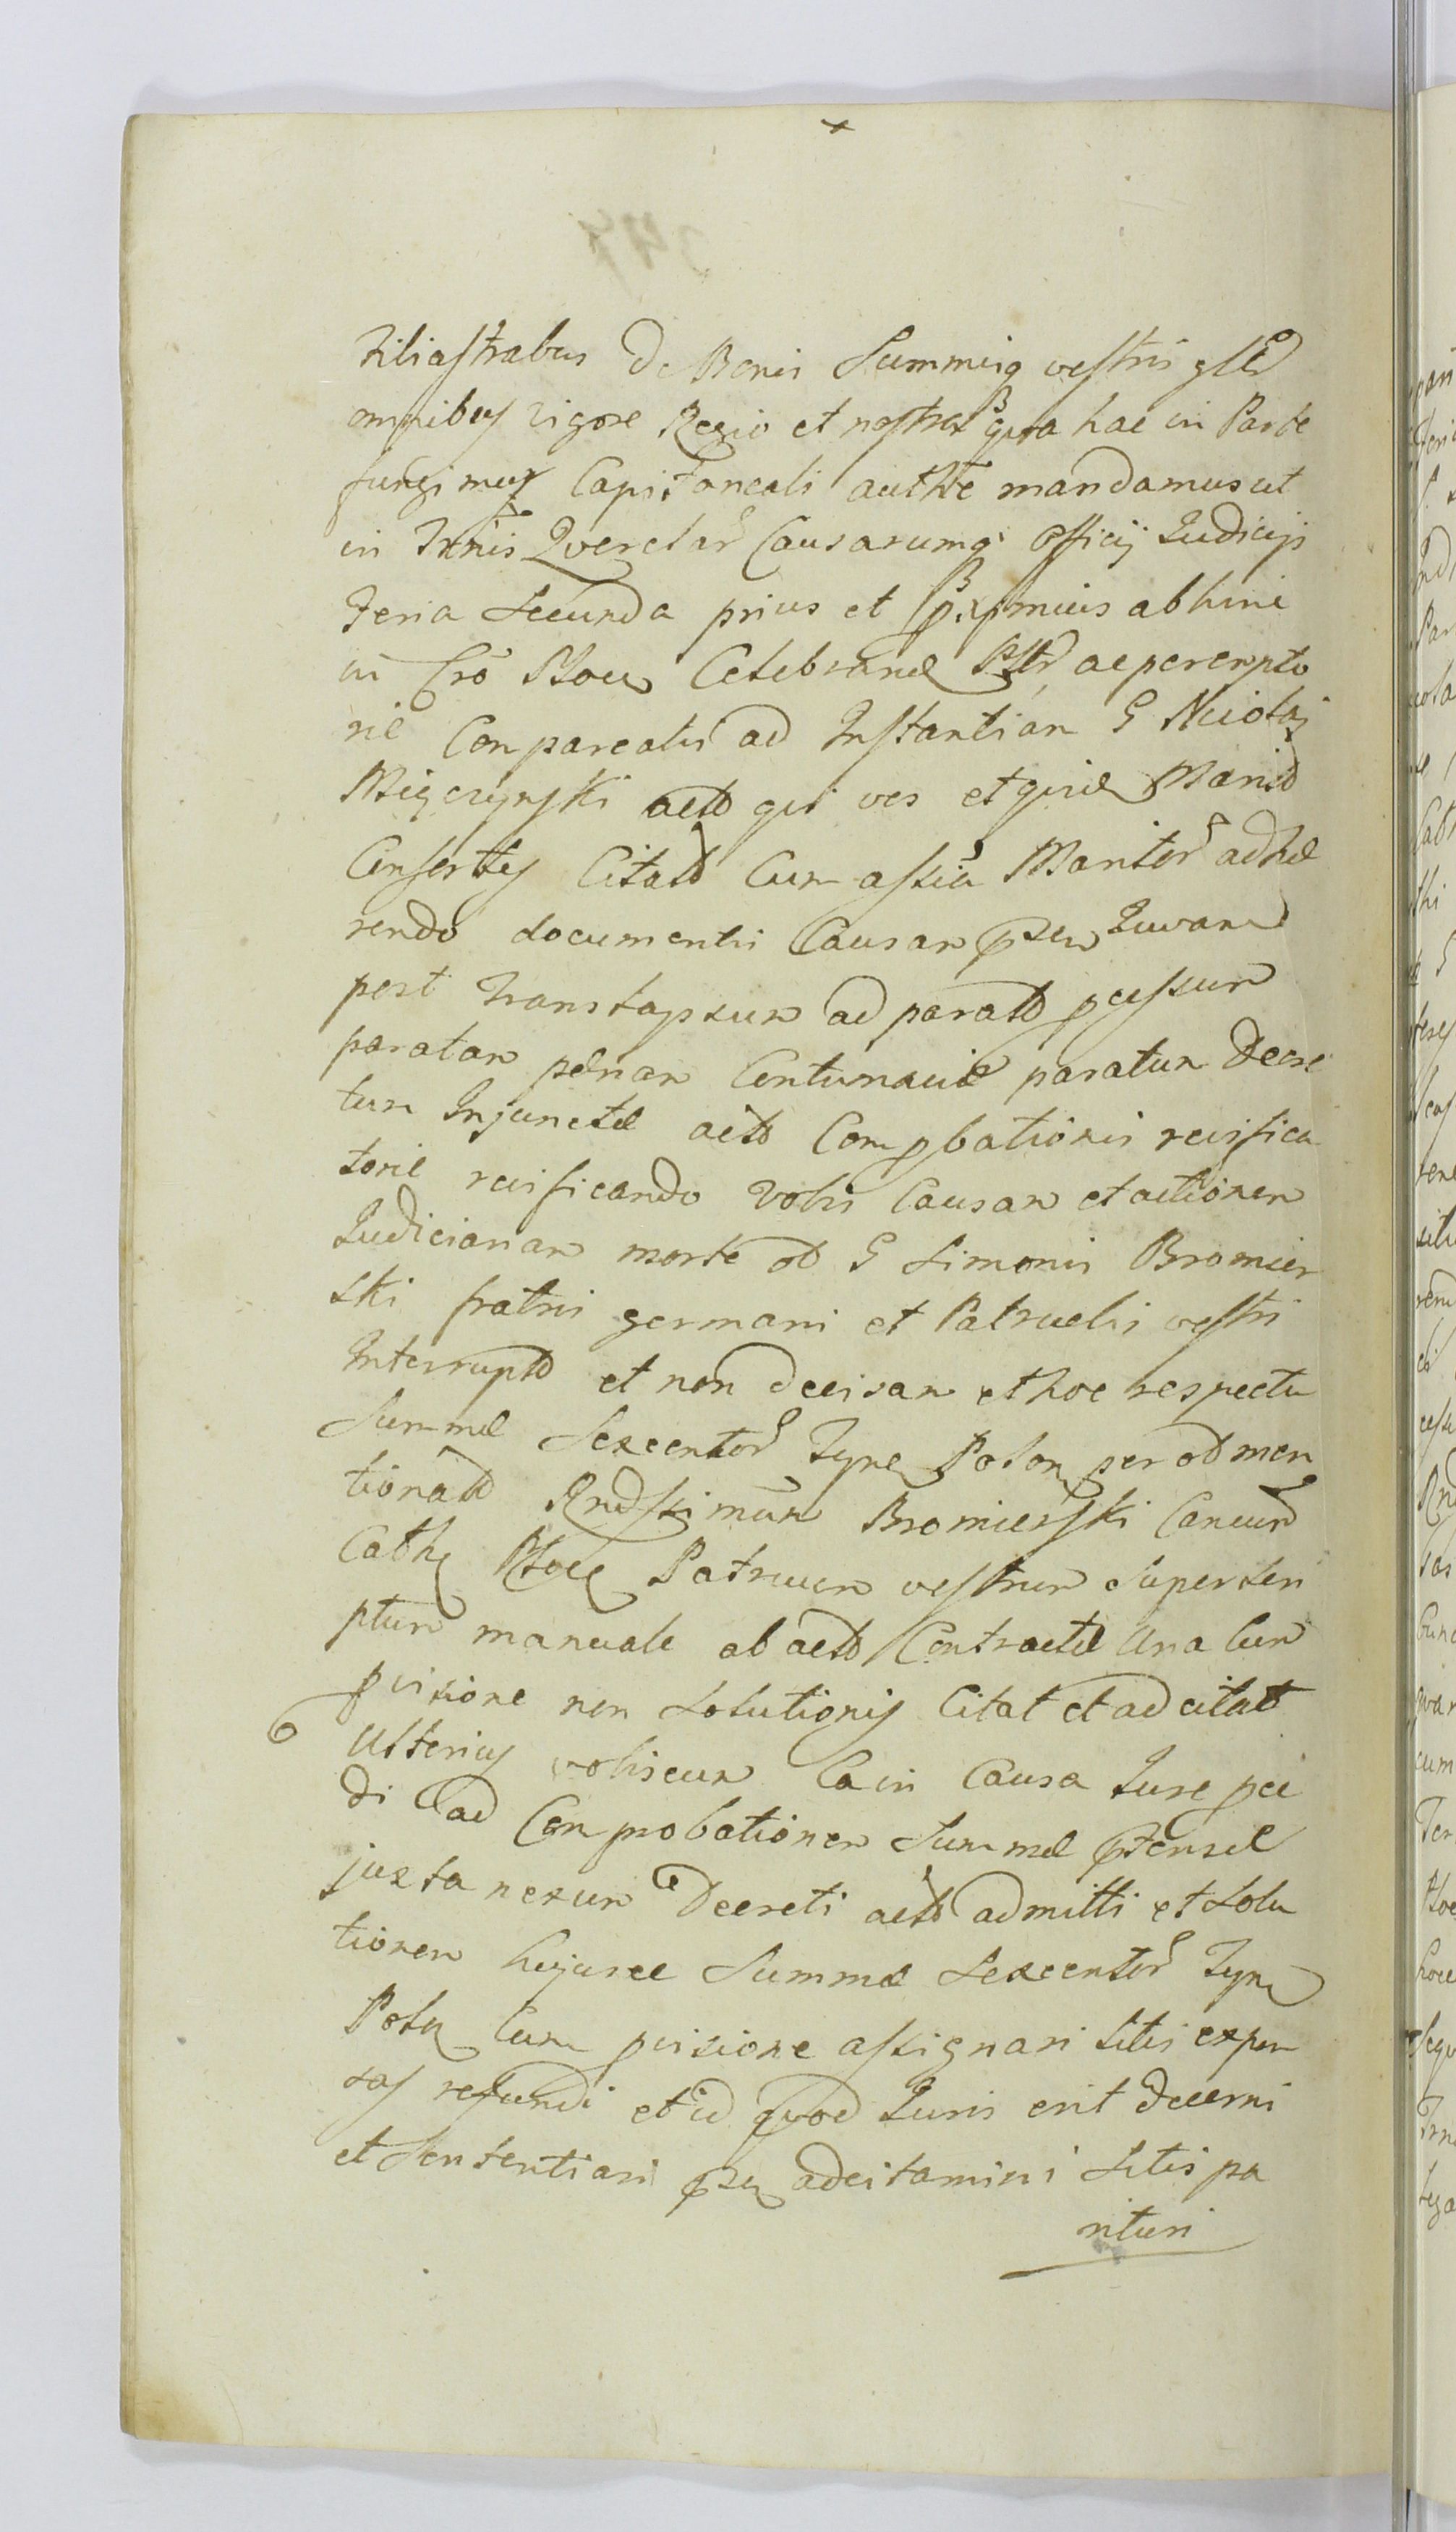 filiastrabus De Bonis Summisq vestris gñlr
omnibus vigore Regio et nostra qua hac in Parte
fungimur Capitaneali authte mandamus ut
in Trnis Querelar Causarumq Officij Judicijs
Feria Secunda prius et pximius abhinc
in Cro Ploceñ Celebrand Pltr ac perempto
rie Compareatis ad Instantiam G Nicolaj
Mięczynski actoris qui vos et quid Marito
Consortes Citato Cum assia Maritor adhæ
rendo documentis Causam pzen Juvañ
post translapsum ad parato pcessum
paratam pænam Contumaciæ paratum Decre
tum Injunctæ acto Comprobationis reisfica
torie reisficando Vobis Causam et actionem
Judiciariam morte od G Simonis Bromier
ski fratris germani et Patruelis vestri
Interrupto et non decisam et hoc respectu
Summæ Sexcentor Tynf Polon per od men
tionato Rndssimum Bromierski Canum
Cathe Ploce Patruum vestrum Superscri
ptum manuale ab acto Contractæ una Cum
pvisione non Solutionis Citat et ad citato
Ulterius vobiscum Ea in Causa Jure pce
di ad Comprobationem Summæ ptensæ
juxta nexum Decreti acto admitti et Solu
tionem hujusce Summæ Sexcentor Tynf
Polon Cum pvisione assignari litis expen
sas refundi et id quod Juris erit decerni
et Sententiari pzen adcitamini Sitis pa
rituri